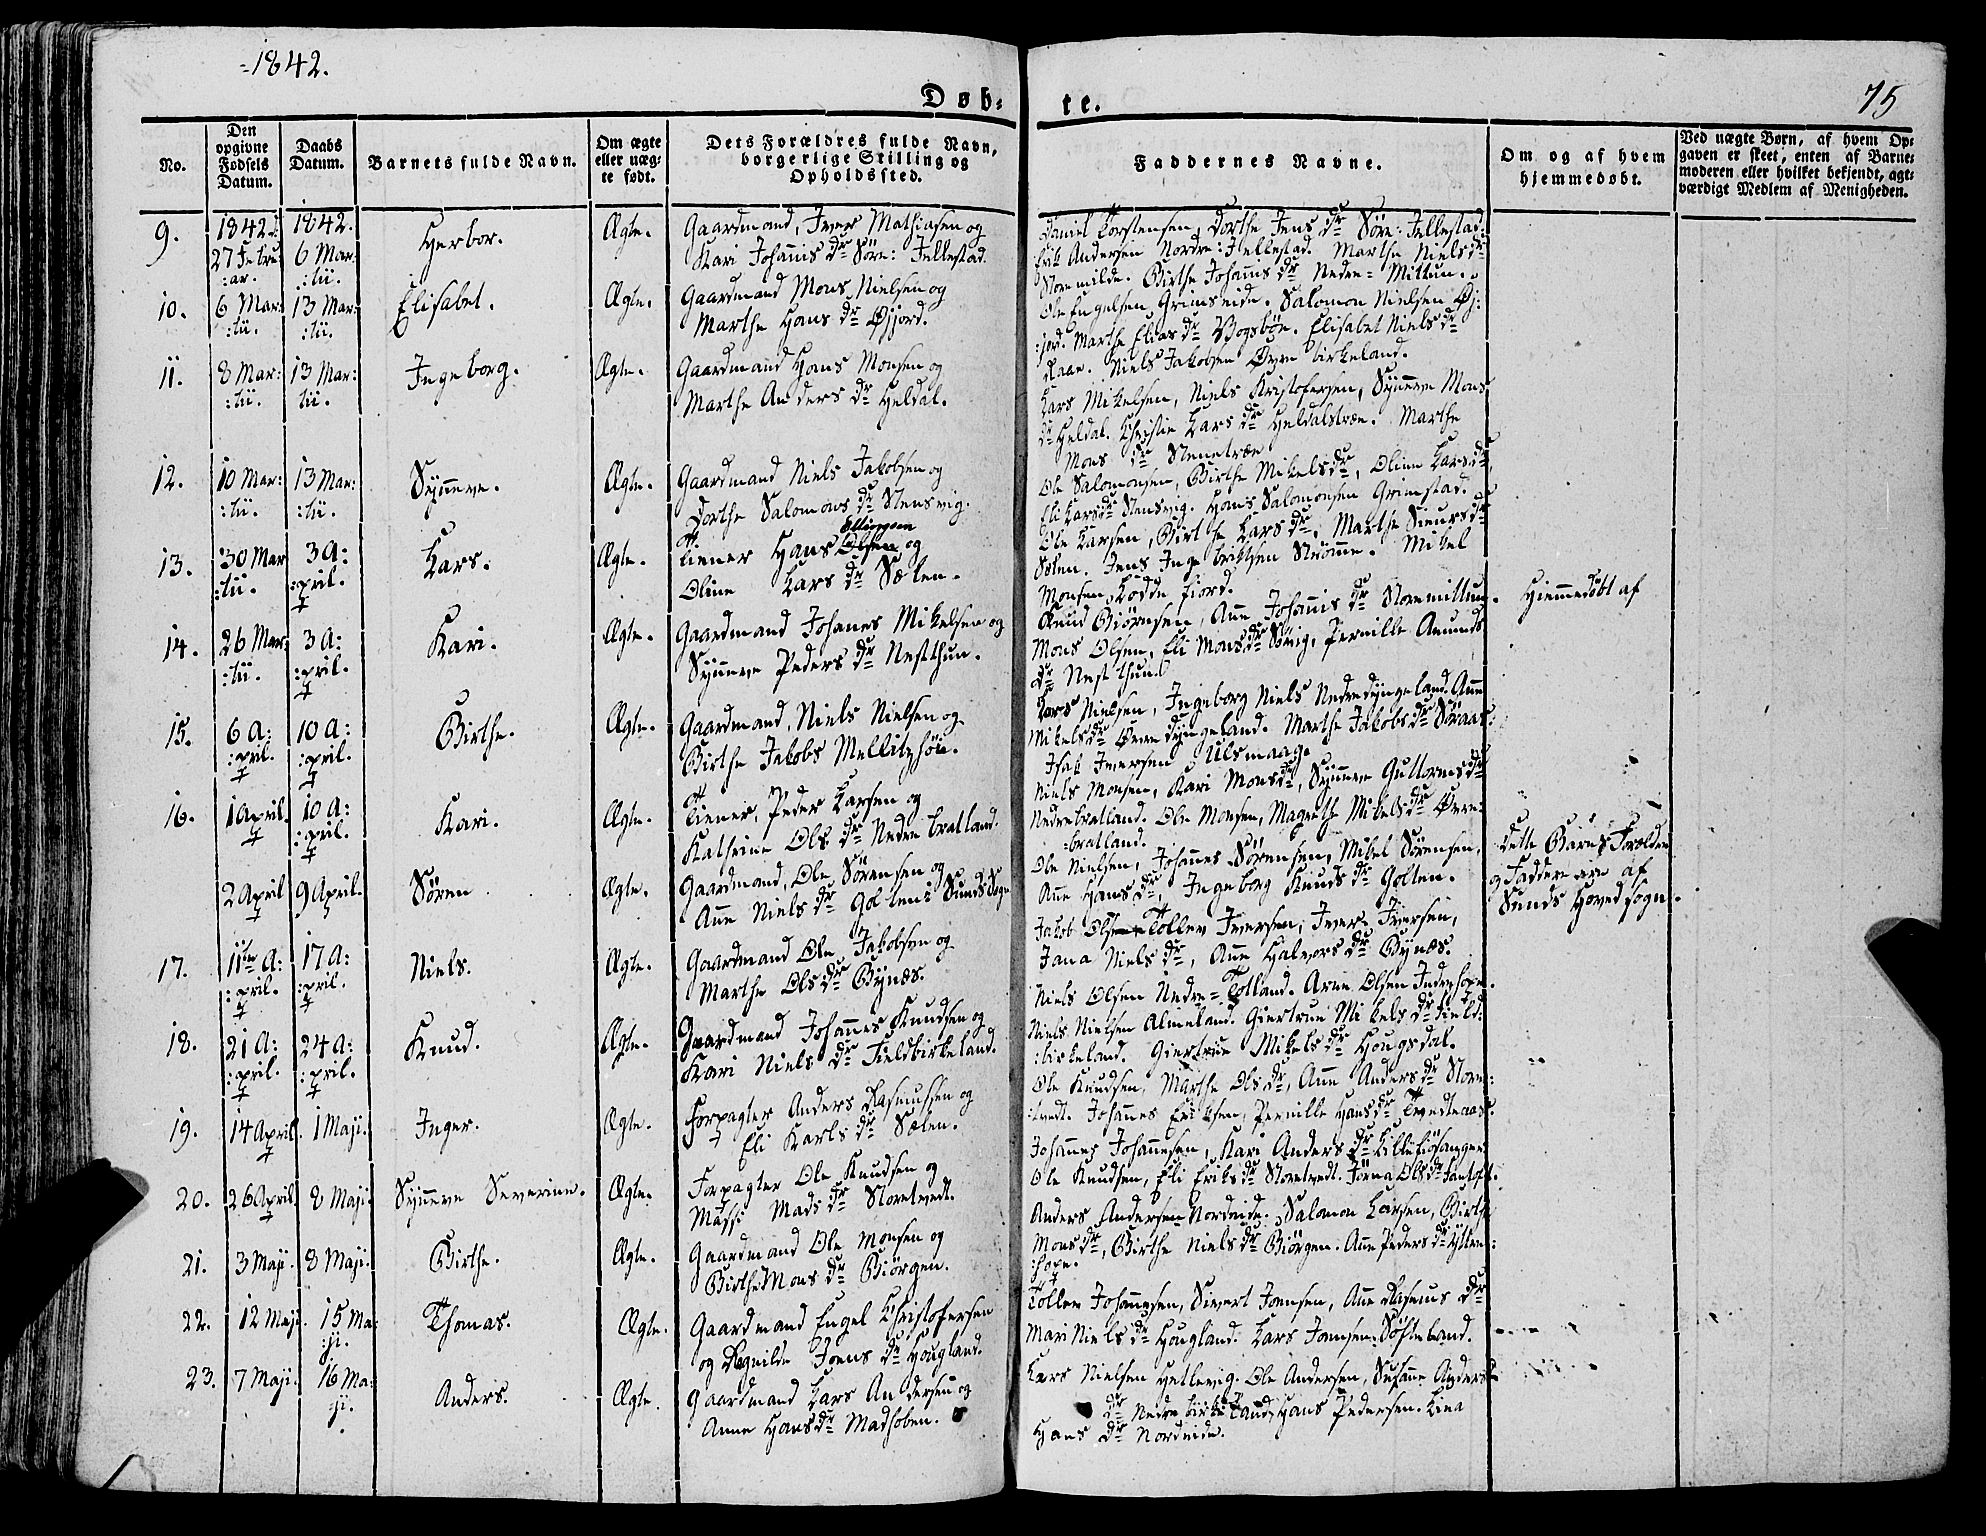 1842.
Døb-
te.
75
No.
Den opgivne Fødsels Datum.
Daabs Datum.
Barnets fulde Navn.
Om ægte eller uæg-te født.
Dets Forældres fulde Navn, borgerlige Stilling og Opholdssted.
Faddernes Navne.
Om og af hvem hjemmedøbt.
Ved uægte Børn, af hvem Op-gaven er skeet, enten af Barne-moderen eller hvilket bekjendt, agt-værdigt Medlem af Menigheden.
9. 1842. 27 Febru:ar. 1842. 6 Mar:tii. Herbor. Ægte.
Gaardmand, Iver Mathiasen og
Kari Johannis dr Søre: Jellestad.
Daniel Torstensen, Dorthe Jens dr Søre: Jellestad.
Erik Andersen Nordre: Jellestad. Marthe Niels dr
Storemilde. Birthe Johannis dr Nedre= Mittun.
10. 6 Mar:tii. 13 Mar:tii. Elisabet. Ægte.
Gaardmand Mons Nielsen og
Marthe Hans dr Øjjord.
Ole Engelsen Grimseide. Salomon Nielsen Øj:
:jord. Marthe Elias dr Vogsbøe. Elisabet Niels dr
Raae. Niels Jakobsen Øvre birkeland.
11. 8 Mar:tii. 13 Mar:tii. Ingeborg. Ægte.
Gaardmand Hans Monsen og
Marthe Anders dr Heldal.
Lars Mikelsen, Niels Kristofersen, Synneve Mons
dr Heldal. Christie Lars dr Heldalstræe. Marthe
Mons dr Stenetræe
12. 10 Mar:tii. 13 Mar:tii. Synneve. Ægte.
Gaardmand Niels Jakobsen og
Dorthe Salomons dr Stensvig.
Ole Salomonsen, Birthe Mikels dr, Oline Lars dr,
Eli Lars dr Stensvig. Hans Salomonsen Grimstad.
13. 30 Mar:tii. 3 A:pril. Lars. Ægte.
Ellingsen
Tiener Hans Olsen og
Oline Lars dr Sælen.
Ole Larsen, Birthe Lars dr, Marthe Siurs dr
Sælen. Jens Ingebriktsen Strømme. Mikel
Monsen Løddefiord.
14. 26 Mar:tii. 3 A:pril. Kari. Ægte.
Gaardmand Johanes Mikelsen og
Synneve Peders dr Nestthun.
Knud Biørnsen, Anne Johannis dr Storemittun.
Mons Olsen, Eli Mons dr Sørig, Pernille Amunds
dr Nestthun.
Hiemmedøbt af
15. 6 A:pril. 10 A:pril. Birthe. Ægte.
Gaardmand, Niels Nielsen og
Birthe Jakobs Mellitzhøie.
Lars Nielsen, Ingeborg Niels Nedredyngeland. Anne
Mikels dr Øvre dyngeland. Marthe Jakobs dr Søraas
Isak Iversen Ulsmaag.
16. 1 April. 10 A:pril. Kari. Ægte.
Tiener, Peder Larsen og
Kathrine Ols dr Nedre bratland.
Niels Monsen, Kari Mons dr, Synneve Guttorms dr
Nedrebratland. Ole Monsen, Magrethe Mikels dr Øvre:
-bratland.
2 April 9 April. Søren Ægte.
Gaardmand, Ole Sørensen og
Anne Niels dr Golten: Sunds Sogn
Ole Nielsen, Johannes Sørensen, Mikel Sørensen,
Anne Hans dr, Ingeborg Knuds dr Golten.
dette Barns Forældre
og Faddere ere af
Sunds Hovedsogn.
17. 11te A:pril. 17 A:pril. Niels. Ægte.
Gaardmand Ole Jakobsen og
Marthe Ols dr Bynæs.
Jakob Olsen Tollev Iversen, Iver Iversen,
Jana Niels dr, Anne Halvors dr Bynæs.
18. 21 A:pril. 24 A:pril. Knud. Ægte.
Gaardmand Johannes Knudsen og
Kari Niels dr Fieldbirkeland.
Niels Olsen Nedre= Totland. Arne Olsen Indrehope.
Niels Nielsen Almeland. Giertrue Mikels dr Field:
:birkeland. Giertrue Mikels dr Hougsdal.
19. 14 April. 1 Maji. Inger. Ægte.
Forpagter Anders Rasmussen og
Eli Karls dr Sælen.
Ole Knudsen, Marthe Ols dr, Anne Anders dr Store:
:tvedt. Johannes Eriksen, Pernille Hans dr Tvedteraas.
20. 26 April. 8 Maji. Synneve Severine. Ægte.
Forpagter Ole Knudsen og
Massi Mads dr Storetvedt.
Johannes Johannesen, Kari Anders dr Lillefiøsanger
Ole Knudsen, Eli Eriks dr Storetvedt. Jorna Ols dr Fantoft.
21. 3 Maji. 8 Maji. Birthe. Ægte.
Gaardmand Ole Monsen og
Birthe Mons dr Biørgen.
Anders Andersen Nordeide. Salomon Larsen, Birthe
Mons dr, Birthe Niels dr Biørgen. Anne Peders dr Ytter:
:hope.
22. 12 Maji. 15 Ma:ji. Thomas. Ægte.
Gaardmand Engel Christofersen
og Ragnilde Joens dr Hougland.
Tollev Johannesen, Sivert Joensen, Anne Rasmus dr
Mari Niels dr Hougland. Lars Joensen Søfteland.
23. 7 Maji. 16 Ma:ji. Anders. Ægte.
Gaardmand Lars Andersen og
Anne Hans dr Madhoben.
Lars Nielsen Hellevig. Ole Andersen, Susanne Anders
dr Nedre birkeland, Hans Pedersen. Lina
Hans dr Nordeide.